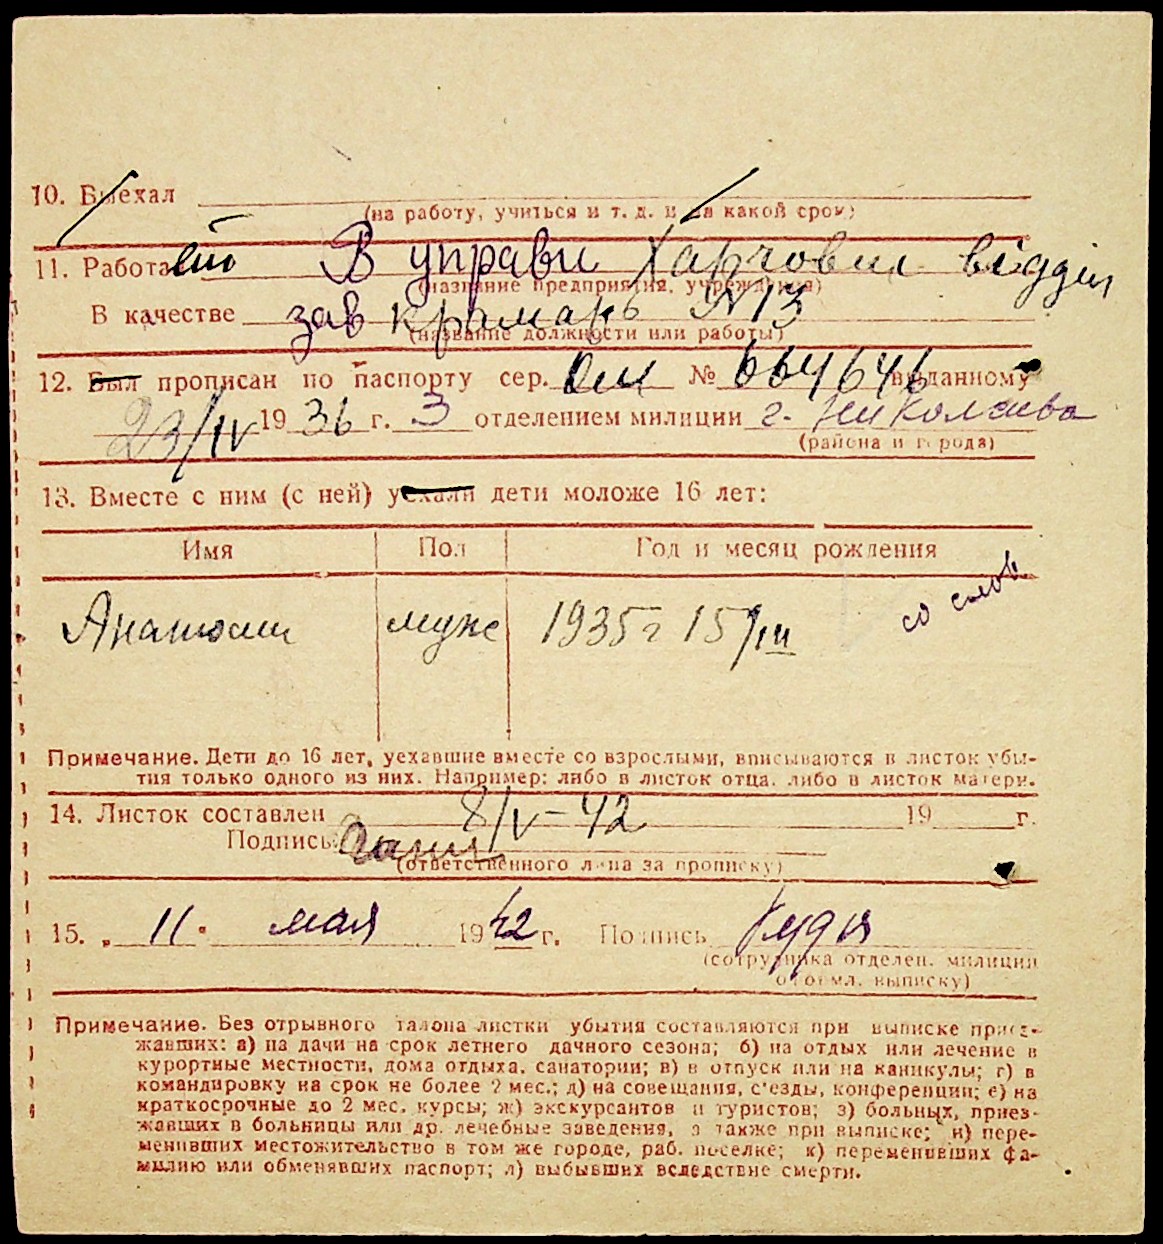 10. Выехал
(на работу, учиться и т. д. и на какой срок)
11. Работает В управи Харчовий відділ
(название предприятия, учреждения)
В качестве зав крамарь №13
(название должности или работы)
12. Был прописан по паспорту сер. № 664646 выданному
23/IV 1936 г. 3 отделением милиции г. Николаева
(района и города)
13. Вместе с ним (с ней) уехали дети моложе 16 лет:
Имя Пол Год и месяц рождения
со слов
Анатолий муже 1935 г 15/III
Примечание. Дети до 16 лет, уехавшие вместе со взрослыми, вписываются в листок убы-
тия только одного из них. Например: либо в листок отца, либо в листок матери.
14. Листок составлен 8/V-42 19 г.
Подпись
(ответственного лица за прописку)
15. „ 11 " мая 1942 г. Подпись
(сотрудника отделен. милиции
оформл. выписку)
Примечание. Без отрывного талона листки убытия составляются при выписке приез-
жавших: а) на дачи на срок летнего дачного сезона; б) на отдых или лечение в
курортные местности, дома отдыха, санатории; в) в отпуск или на каникулы; г) в
командировку на срок не более 2 мес.; д) на совещания, с'езды, конференции; е) на
краткосрочные до 2 мес. курсы; ж) экскурсантов и туристов; з) больных, приез-
жавших в больницы или др. лечебные заведения, а также при выписке; и) пере-
менивших местожительство в том же городе, раб. поселке; к) переменивших фа-
милию или обменявших паспорт; л) выбывших вследствие смерти.